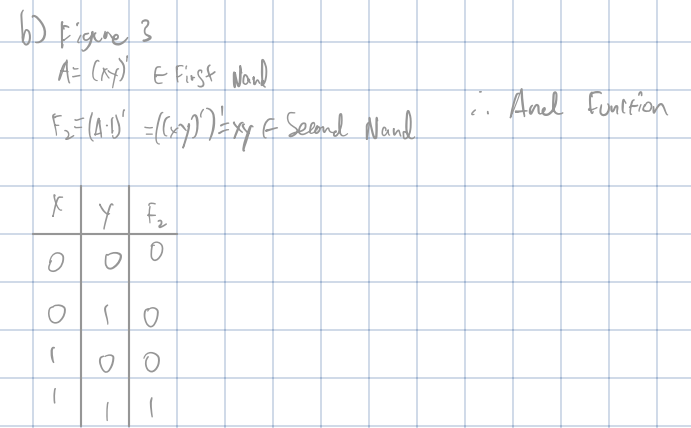 b) Figure 3
A = (xy)' ∈ First Nand
F₂ = (A·1)' = ((xy)')' = xy ∈ Second Nand
∴ And Function
X Y F₂
0 0 0
0 1 0
1 0 0
1 1 1